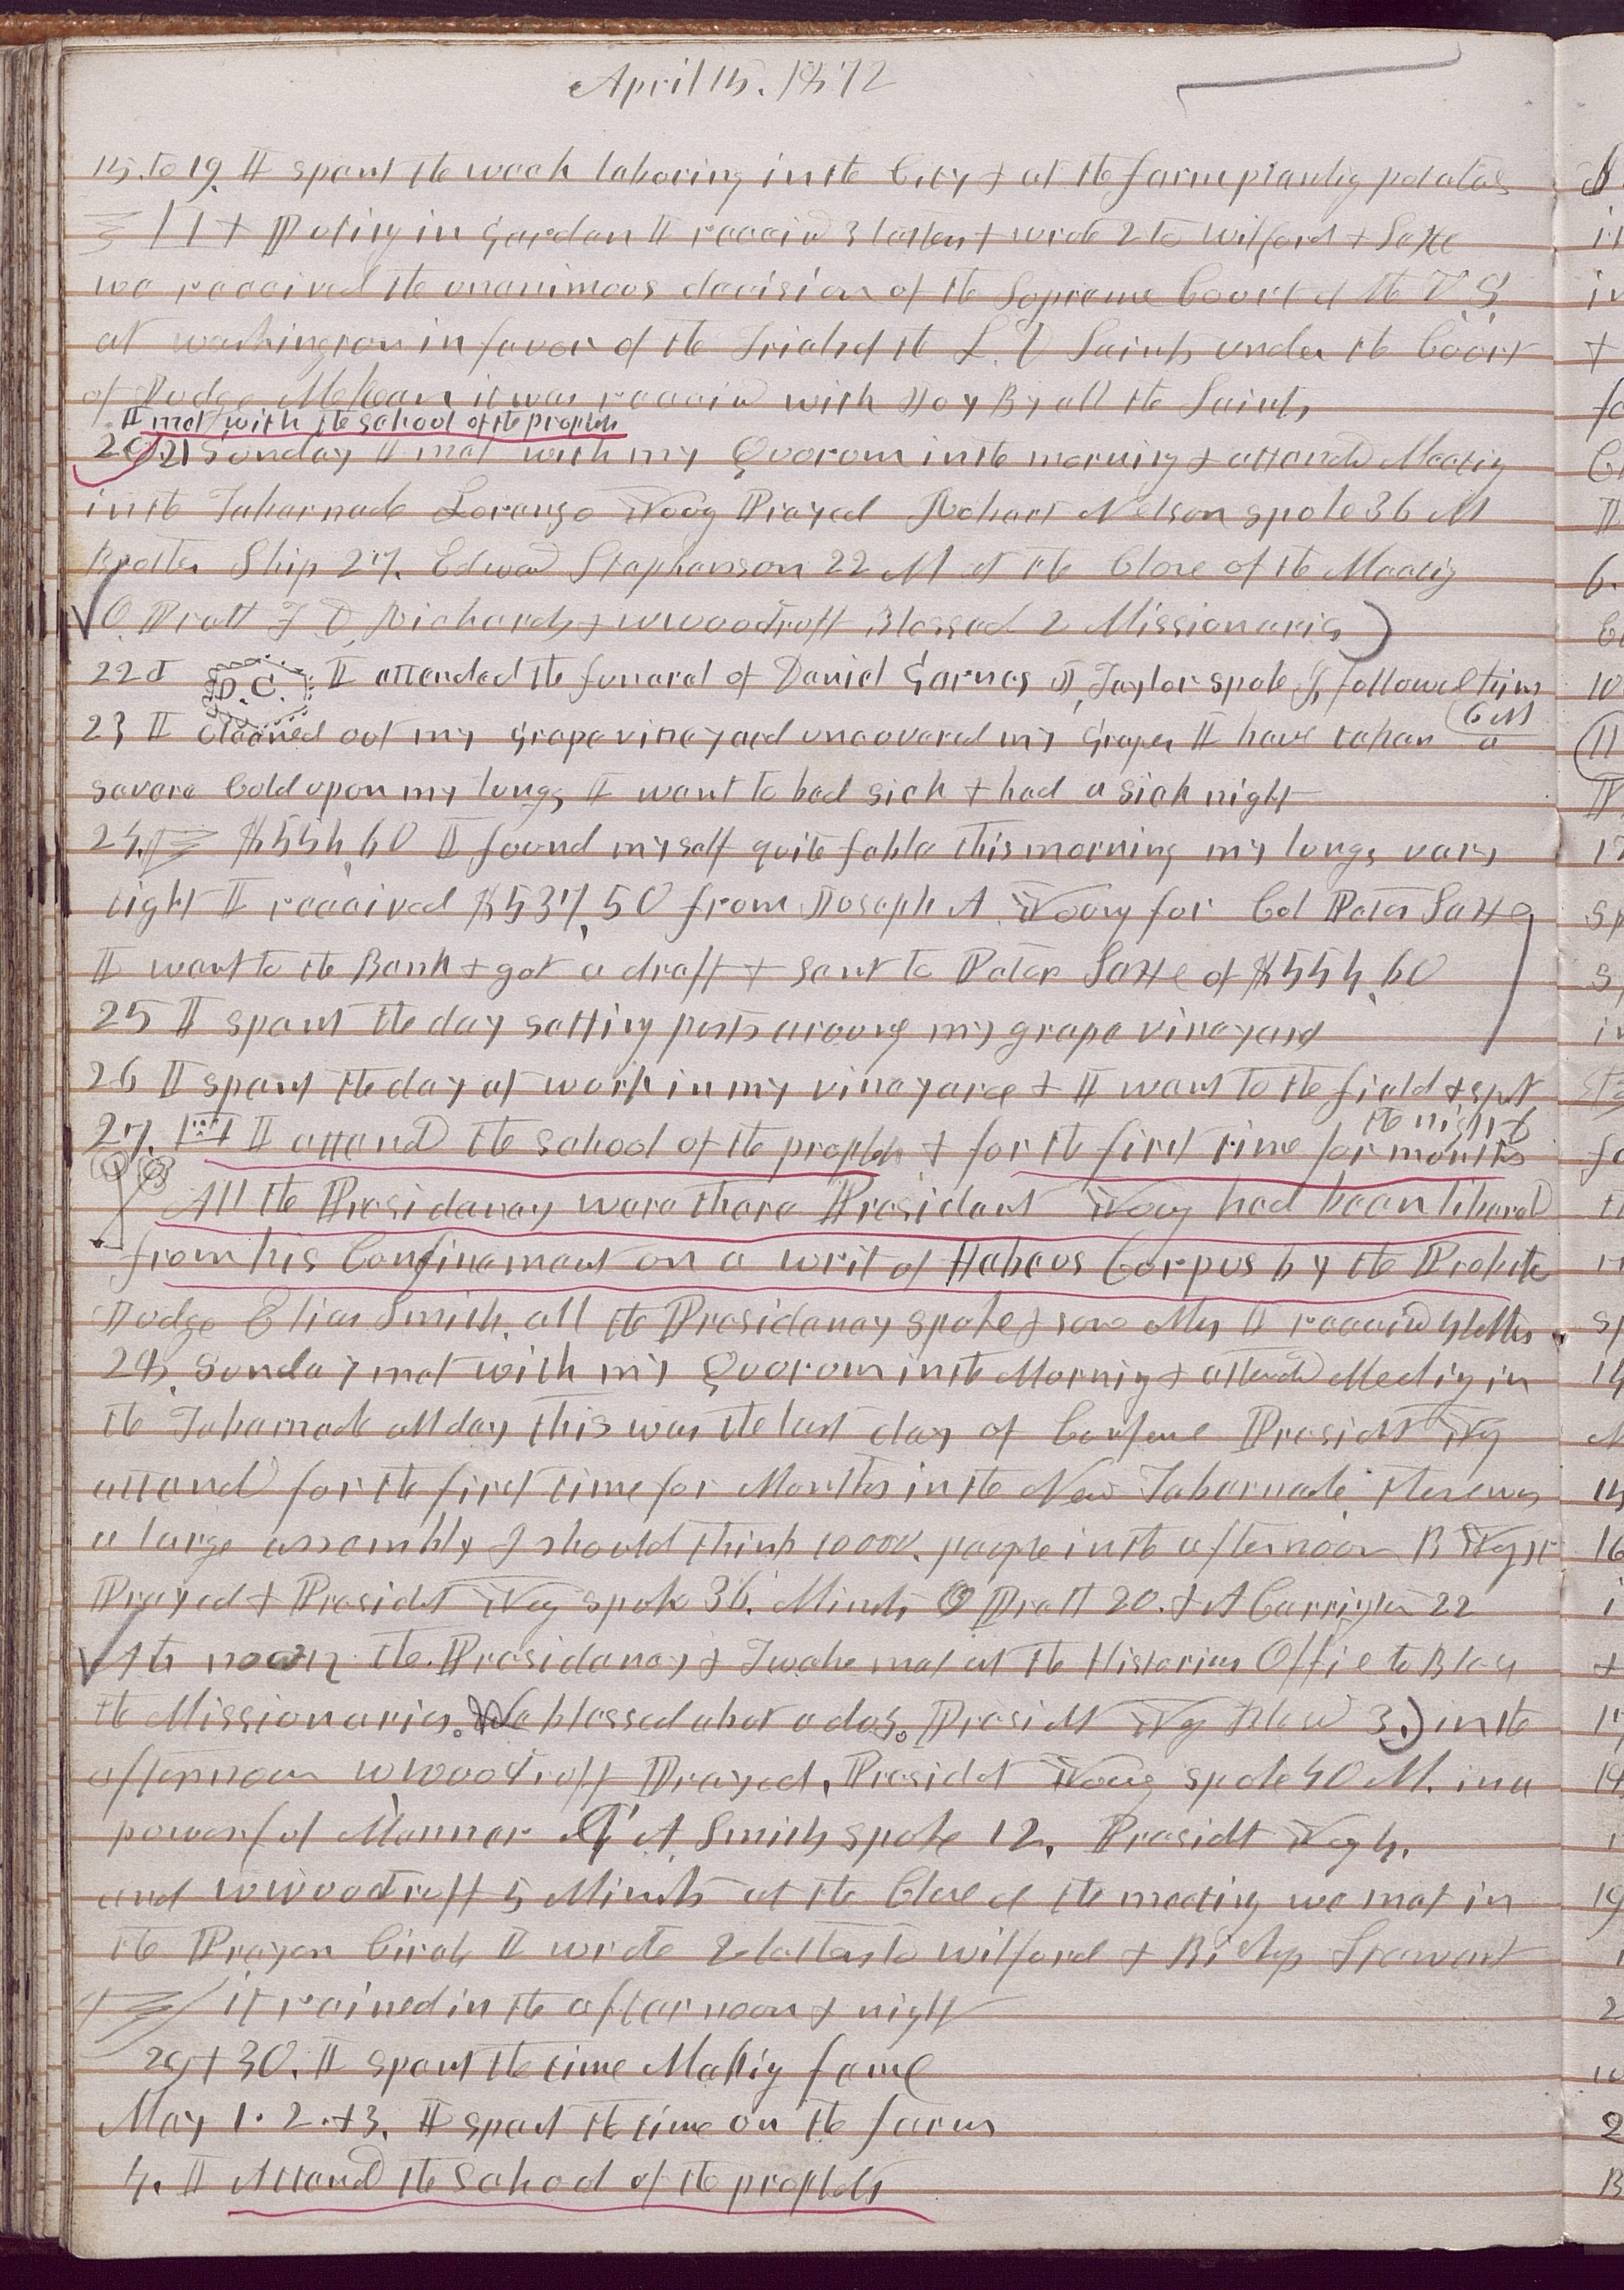 April 15. 1872
15. to 19. I spent the week laboring in the City & at the farm planting potatoes
& Puting in Garden I receivd 3 letters & wrote 2 to Wilford & Saxe
we received the unanimous decision of the Supreme Court of the U.S.
at washington in favor of the Trials of the L. D Saints under the Court
of Judge McKean it was receivd with Joy By all the Saints
I met with the school of the prophets
20. 21 Sunday I met with my Quorum in the morning & attend Meeting
in the Tabernacle Lorenzo Young Prayed Robert Nelson spoke 36 M
Brother Ship 27. Edwad Stephenson 22 M at the Close of the Meeting
O. Pratt F D Richards & W Woodruff Blessed 2 Missionaries
22d D.C. I attended the funeral of Daniel Garnes J, Taylor spoke & followed him
6 M
23 I cleaned out my Grape vineyard uncovered my Grapes I have taken a
severe Cold upon my lungs I went to bed sick & had a sick night
24. $554,60 I found myself quite feble this morning my lungs very
tight I received $537,50 from Joseph A Young for Col Peter Saxe
I went to the Bank & got a draft & sent to Peter Saxe of $554,60
25 I spent the day setting posts around my grape vineyard
26 I spent the day at work in my vineyard & I went to the field & spet
the night
27. I attend the school of the prophets & for the first time for months
All the Presidency were there President Young had been liberd
from his Confinement on a writ of Habeus Corpus by the Probate
Judge Elias Smith. all the Presidency spoke & some others I receivd 4 letters
28. Sunday met with my Quorum in the Morning & attend Meeting in
the Tabernacle all day this was the last day of Confrence Presidt Yg
attend for the first time for Months in the New Tabernacle there was
a large assembly I should think 10000. people in the afternoon B Young jr
Prayed & Presidet Yg spoke 36. Minuts O Pratt 20. & A Carrigton 22
At noon the Presidency & Twelve met at the Historian Office to Bless
the Missionaries. We blessed about a doz. Presidt Yg Blessd 3.) in the
afternoon W Woodruff Prayed, Presidet Young spoke 40 M. in a
powerful Manner G A Smith spoke 12, Presidt Yg 4.
and W Woodruff 5 Minuts at the Close of the meeting we met in
the Prayer Circle I wrote 2 letters to Wilford & Bishop Stewart
it rained in the afternoon & night
29 & 30. I spent the time Making fence
May 1. 2. & 3. I spent the time on the farm
4. I Attend the School of the prophets